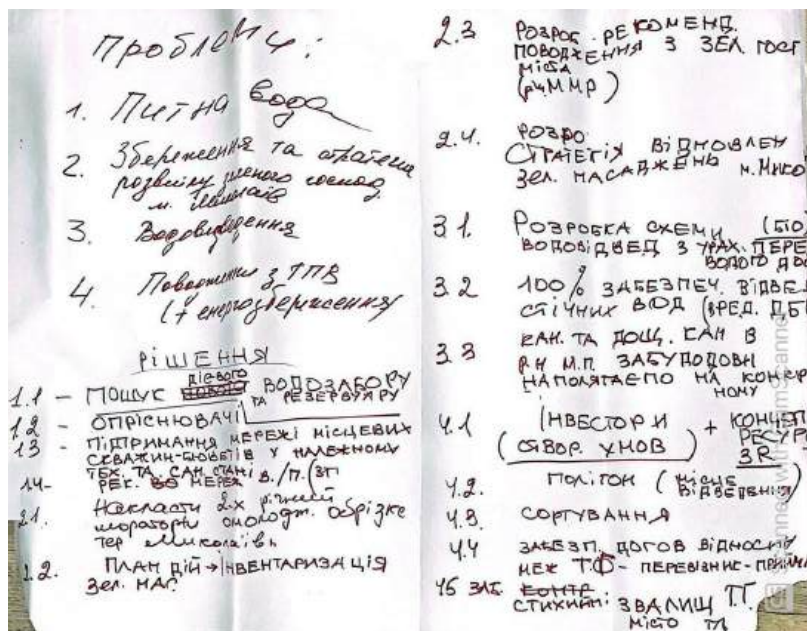 Проблеми:
1. Питна вода
2. Збереження та стратегія
розвитку зеленого господ.
м. Миколаїв
3. Водовідведення
4. Поводження з ТПВ
(+ енергозбереження)
РІШЕННЯ
1.1 - ПОШУК дієвого ВОДОЗАБОРУ
ТА РЕЗЕРВУАРУ
1.2 - ОПРІСНЮВАЧІ
1.3 - ПІДТРИМАННЯ МЕРЕЖІ МІСЦЕВИХ
СКВАЖИН-БЮВЕТІВ У НАЛЕЖНОМУ
ТЕХ. ТА. САН. СТАНІ
1.4 - РЕК. МЕРЕЖ В./П.
2.1. Накласти 2-х річний
мораторій омолодж. обрізке
тер Миколаїв
2.2. ПЛАН ДІЙ → ІНВЕНТАРИЗАЦІЯ
ЗЕЛ. НАС.
2.3 РОЗРОБ. РЕКОМЕНД.
ПОВОДЖЕННЯ З ЗЕЛ ГОСП
МІСТА
(рч ММР)
2.4. РОЗРО
СТРАТЕГІЯ ВІДНОВЛЕН
ЗЕЛ. НАСАДЖЕНЬ м. Мико
3.1. РОЗРОБКА СХЕМИ (БІО
ВОДОВІДВЕД З УРАХ. ПЕРЕ
3.2 100% ЗАБЕЗПЕЧ. ВІДВЕД
СТІЧНИХ ВОД
3.3 КАН. ТА ДОЩ. КАН В
РН М.П. ЗАБУДОДОВИ
НАПОЛЯГАЄПО НА
НОМУ
4.1 ІНВЕСТОРИ + КОНЦЕП
(СТВОР. УМОВ) РЕСУР
3R
4.2. ПОЛІГОН (місце
ВІДВЕДЕННЯ)
4.3. СОРТУВАННЯ
4.4 ЗАБЕЗП. ДОГОВ ВІДНОСИ
МЕЖ Т.Ф - ПЕРЕВІЗНИК - ПРИЙМА
45 ЗАБ. СТИХИЙН: ЗВАЛИЩ ТГ
МІСТО
Scanned with CamScanner